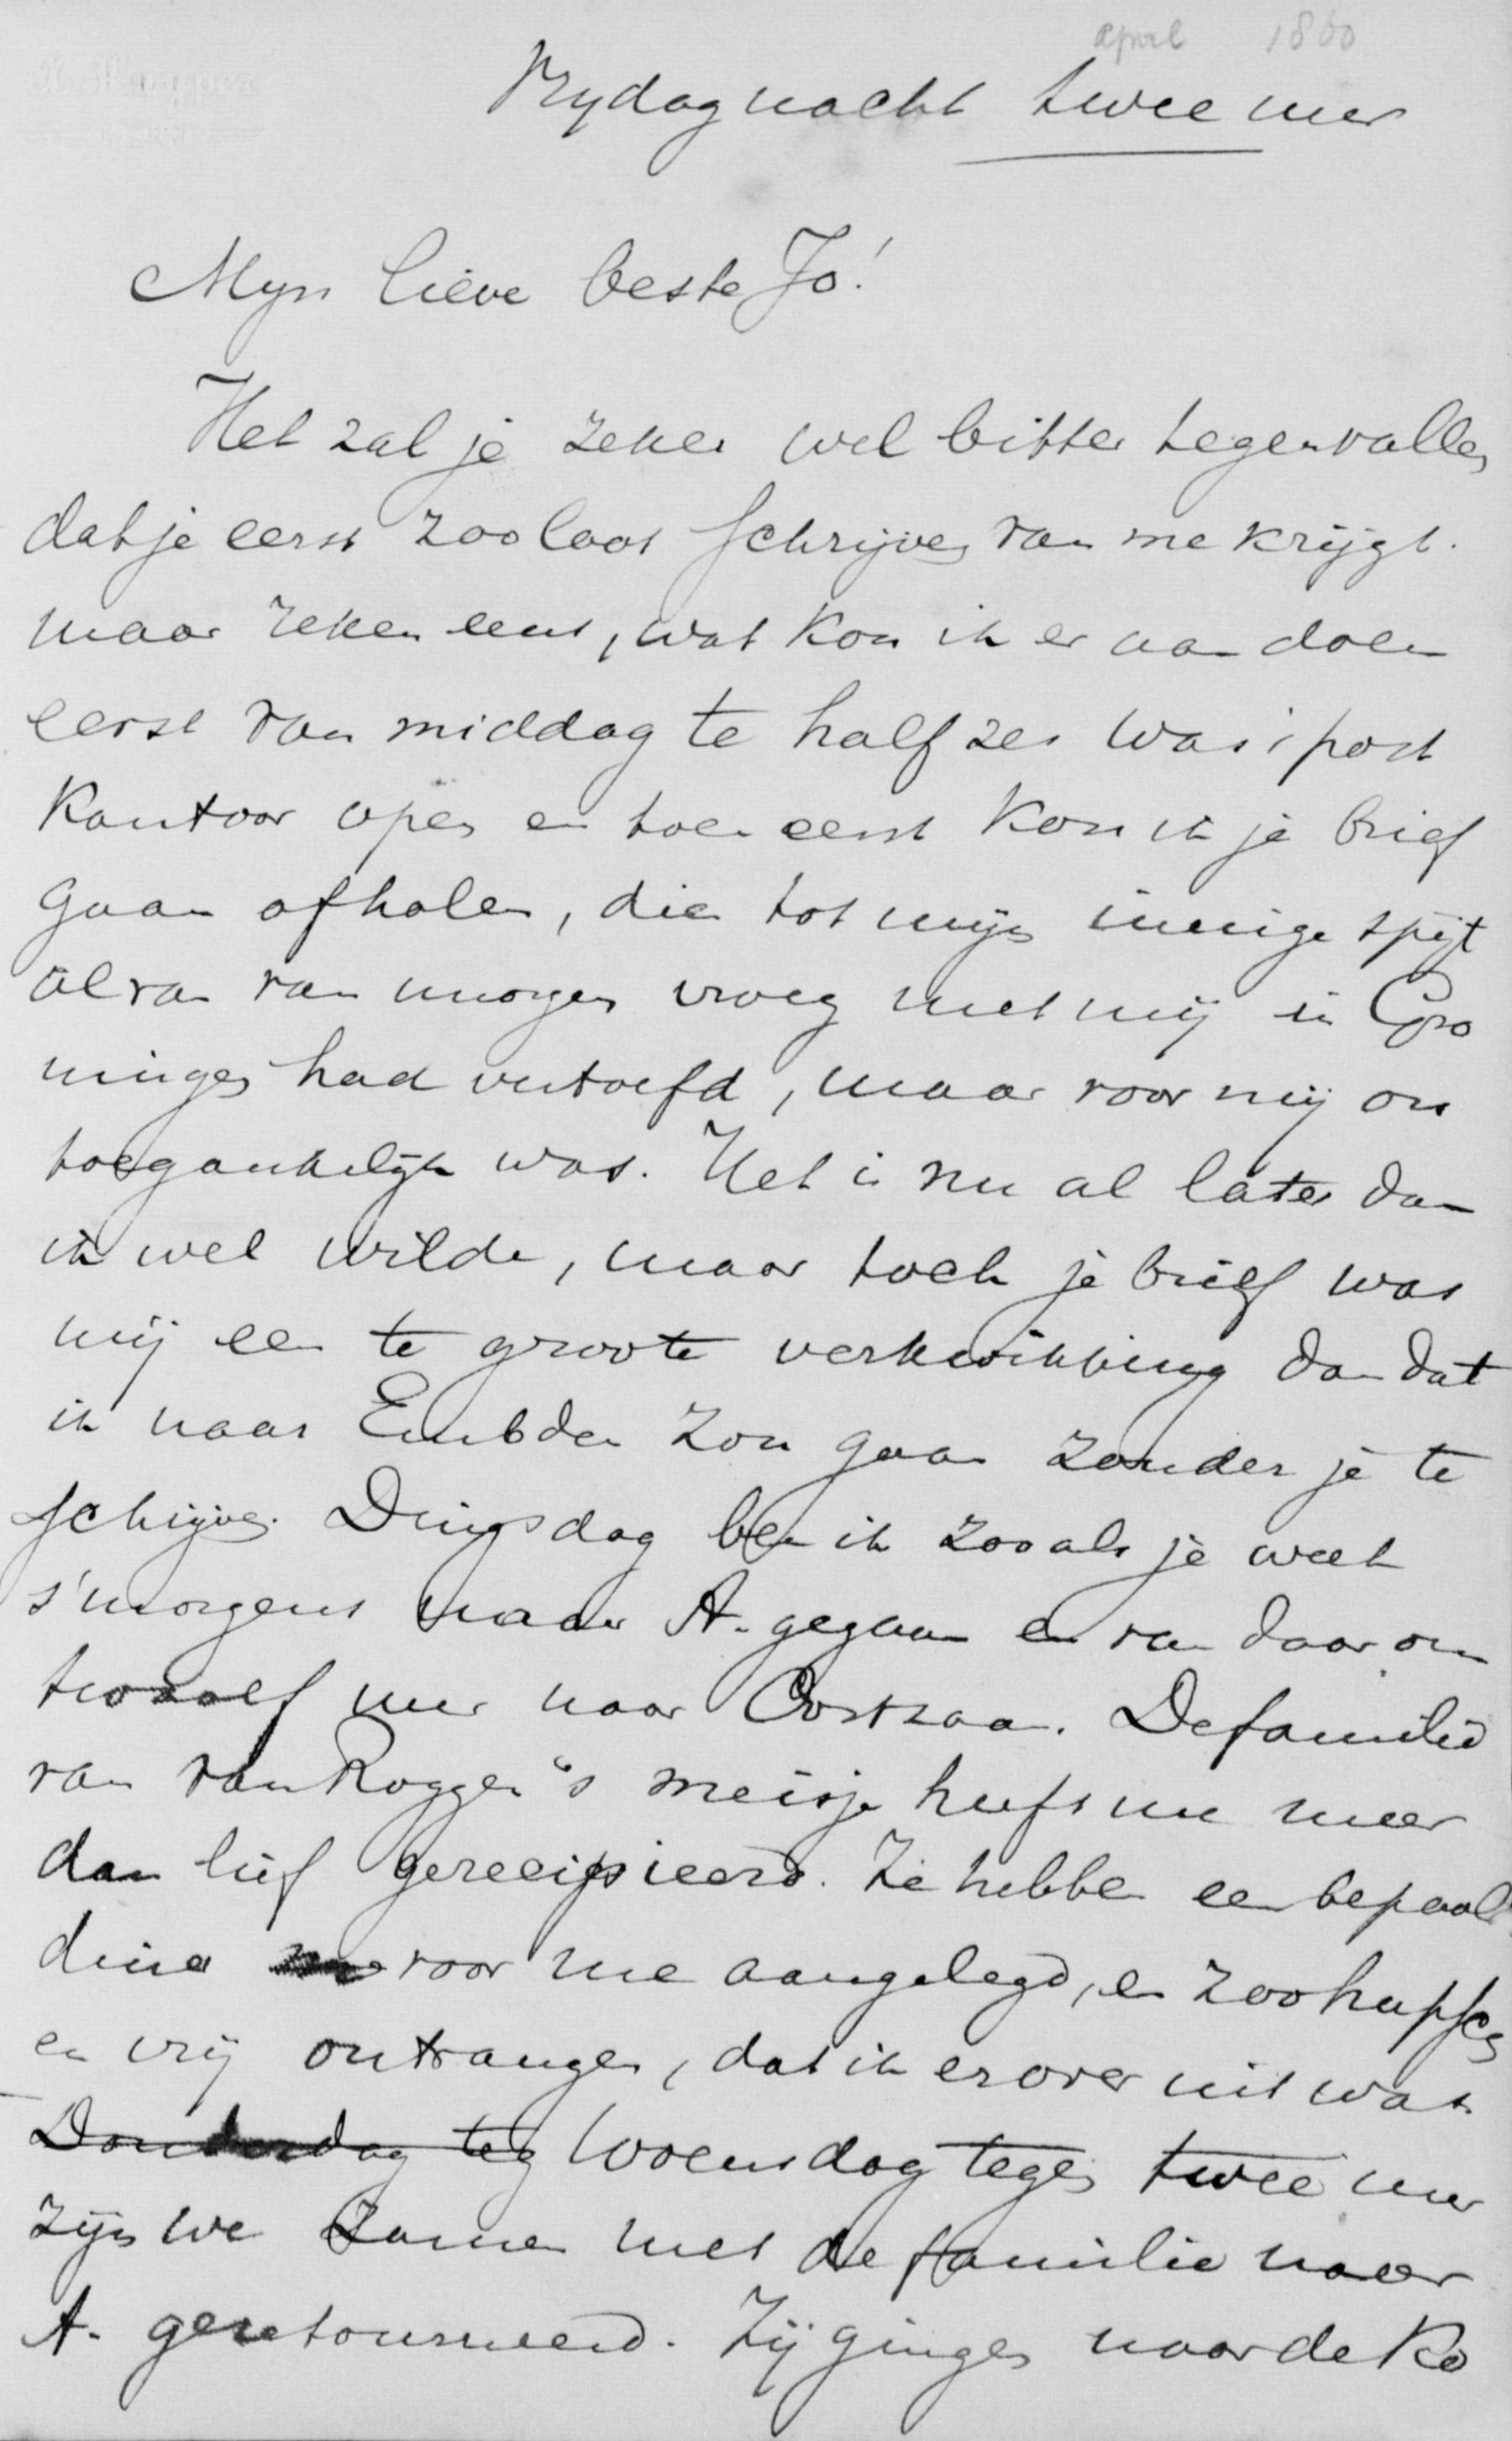 april 1860
Vrydag nacht twee uur
Myn lieve beste Jo!
Het zal je zeker wel bitter tegenvallen
dat je eerst zoo laat schrijven van me krijgt.
maar reken eens, wat kon ik er aan doen
eerst van middag te half zes was 't post
kantoor open en toen eerst kon ik je brief
gaan afhalen, die tot mijn innige spijt
al van van morgen vroeg met mij in Gro
ningen had vertoefd, maar voor mij on
toegankelijk was. Het is nu al later dan
ik wel wilde, maar toch je brief was
mij een te groote verkwikking dan dat
ik naar Embden zou gaan zonder je te
schrijven. Dingsdag ben ik zooals je weet
s'morgens naar A. gegaan en van daar om
twaalf uur naar Oostzaan. De familie
van van Roggen's meisje heeft me meer
dan lief gerecipieerd. Ze hebben een bepaald
diner voor me aangelegd, en zoo heupsch
en vrij ontvangen, dat ik er over uit was
Donderdag teg Woensdag tegen twee uur
zijn we zamen met de familie naar
A. geretourneerd. Zij gingen naar de Ko